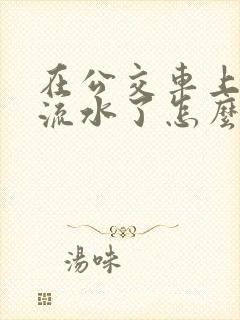 在公交車上
流水了怎麼
湯味